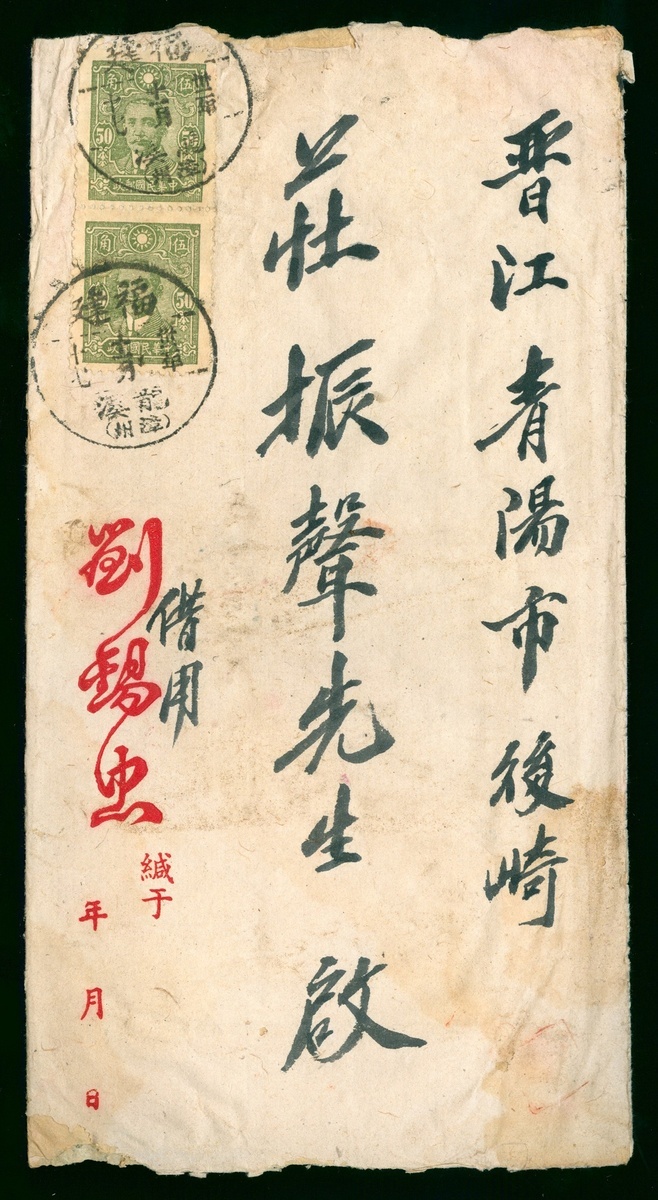 晋江青陽市後崎
莊振聲先生 啟
伍角
50
中華民國郵政
伍角
50
中華民國郵政
福建
龍溪
(漳州)
借用
劉錫忠
緘于
年 月 日